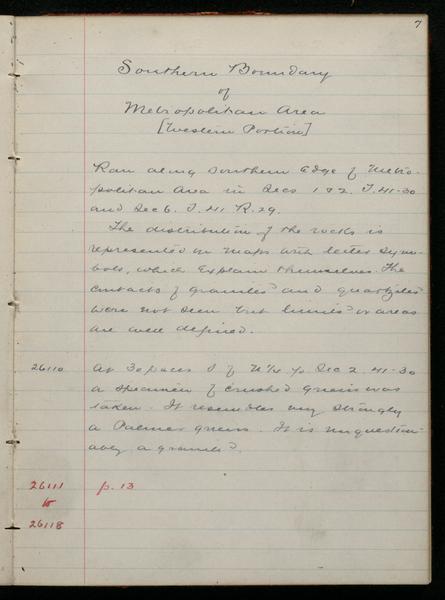 7
Southern Boundary
of
Metropolitan Area
[Western Portion]
Ran along Southern Edge of Metro-
politan Area in Secs 1 & 2. T. 41-30
and Sec 6. T. 41 R. 29.
The distribution of the rocks is
represented on maps with letter sym-
bols, which explain themselves. The
contacts of granites and quartzites
were not seen but limits or areas
are well defined.
26110 At 30 paces S of N 1/4 p Sec 2. 41-30
a specimen of crushed gneiss was
taken. It resembles very strongly
a Palmer gneiss. It is unquestion-
ably a granite.
26111 p. 13
to
26118